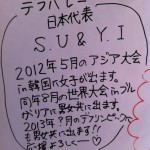 デフバレー
日本代表
S.U & Y.I
2012年5月のアジア大会
in韓国に女子が出ます。
同年8月の世界大会inブル
ガリアに男女共に出ます。
2013年?月のデフリンピックへ
も男女共に出ます!!
応援よろしくー♡